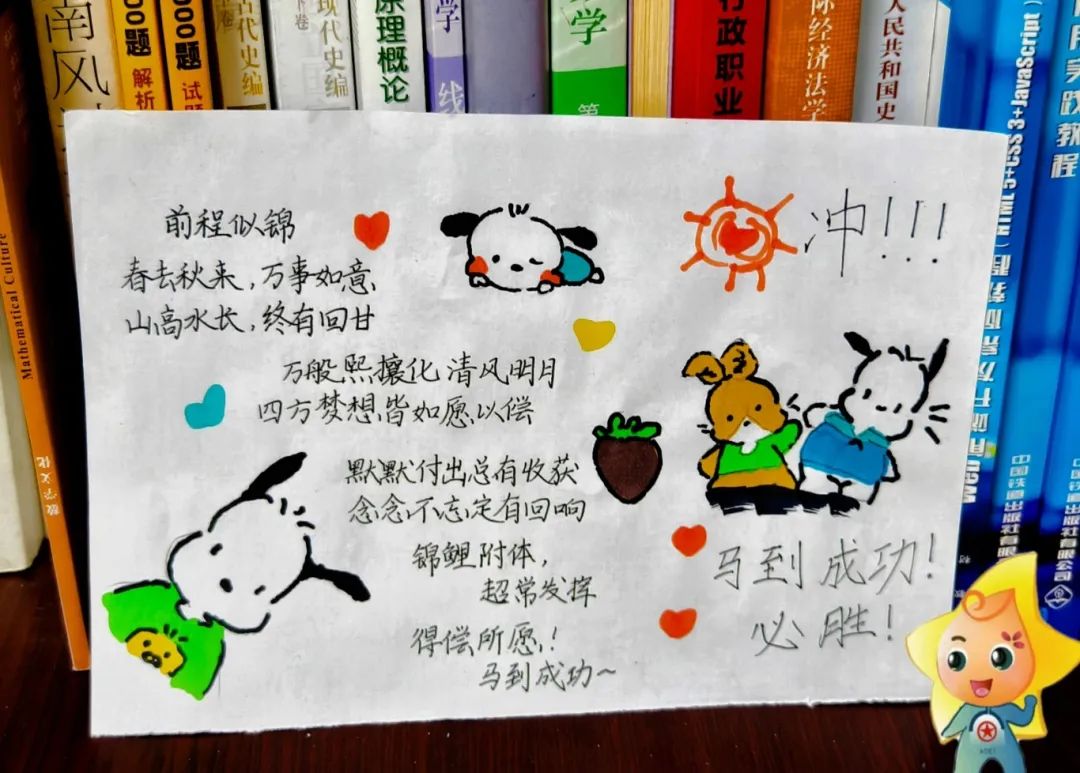 南风
000题 解析
000题 试题
古代史编
现代史编 下卷
原理概论
学 线
学 第
行政职业
际经济法学
人民共和国史
HTML 5+CSS 3+JavaScript
实践教程
中国铁道出版社有限公司
中国铁道出版社有限
Mathematical Culture
数学文化
前程似锦
春去秋来，万事如意
山高水长，终有回甘
万般熙攘化清风明月
四方梦想皆如愿以偿
默默付出总有收获
念念不忘定有回响
锦鲤附体，
超常发挥
得偿所愿！
马到成功~
冲！！！
马到成功！
必胜！